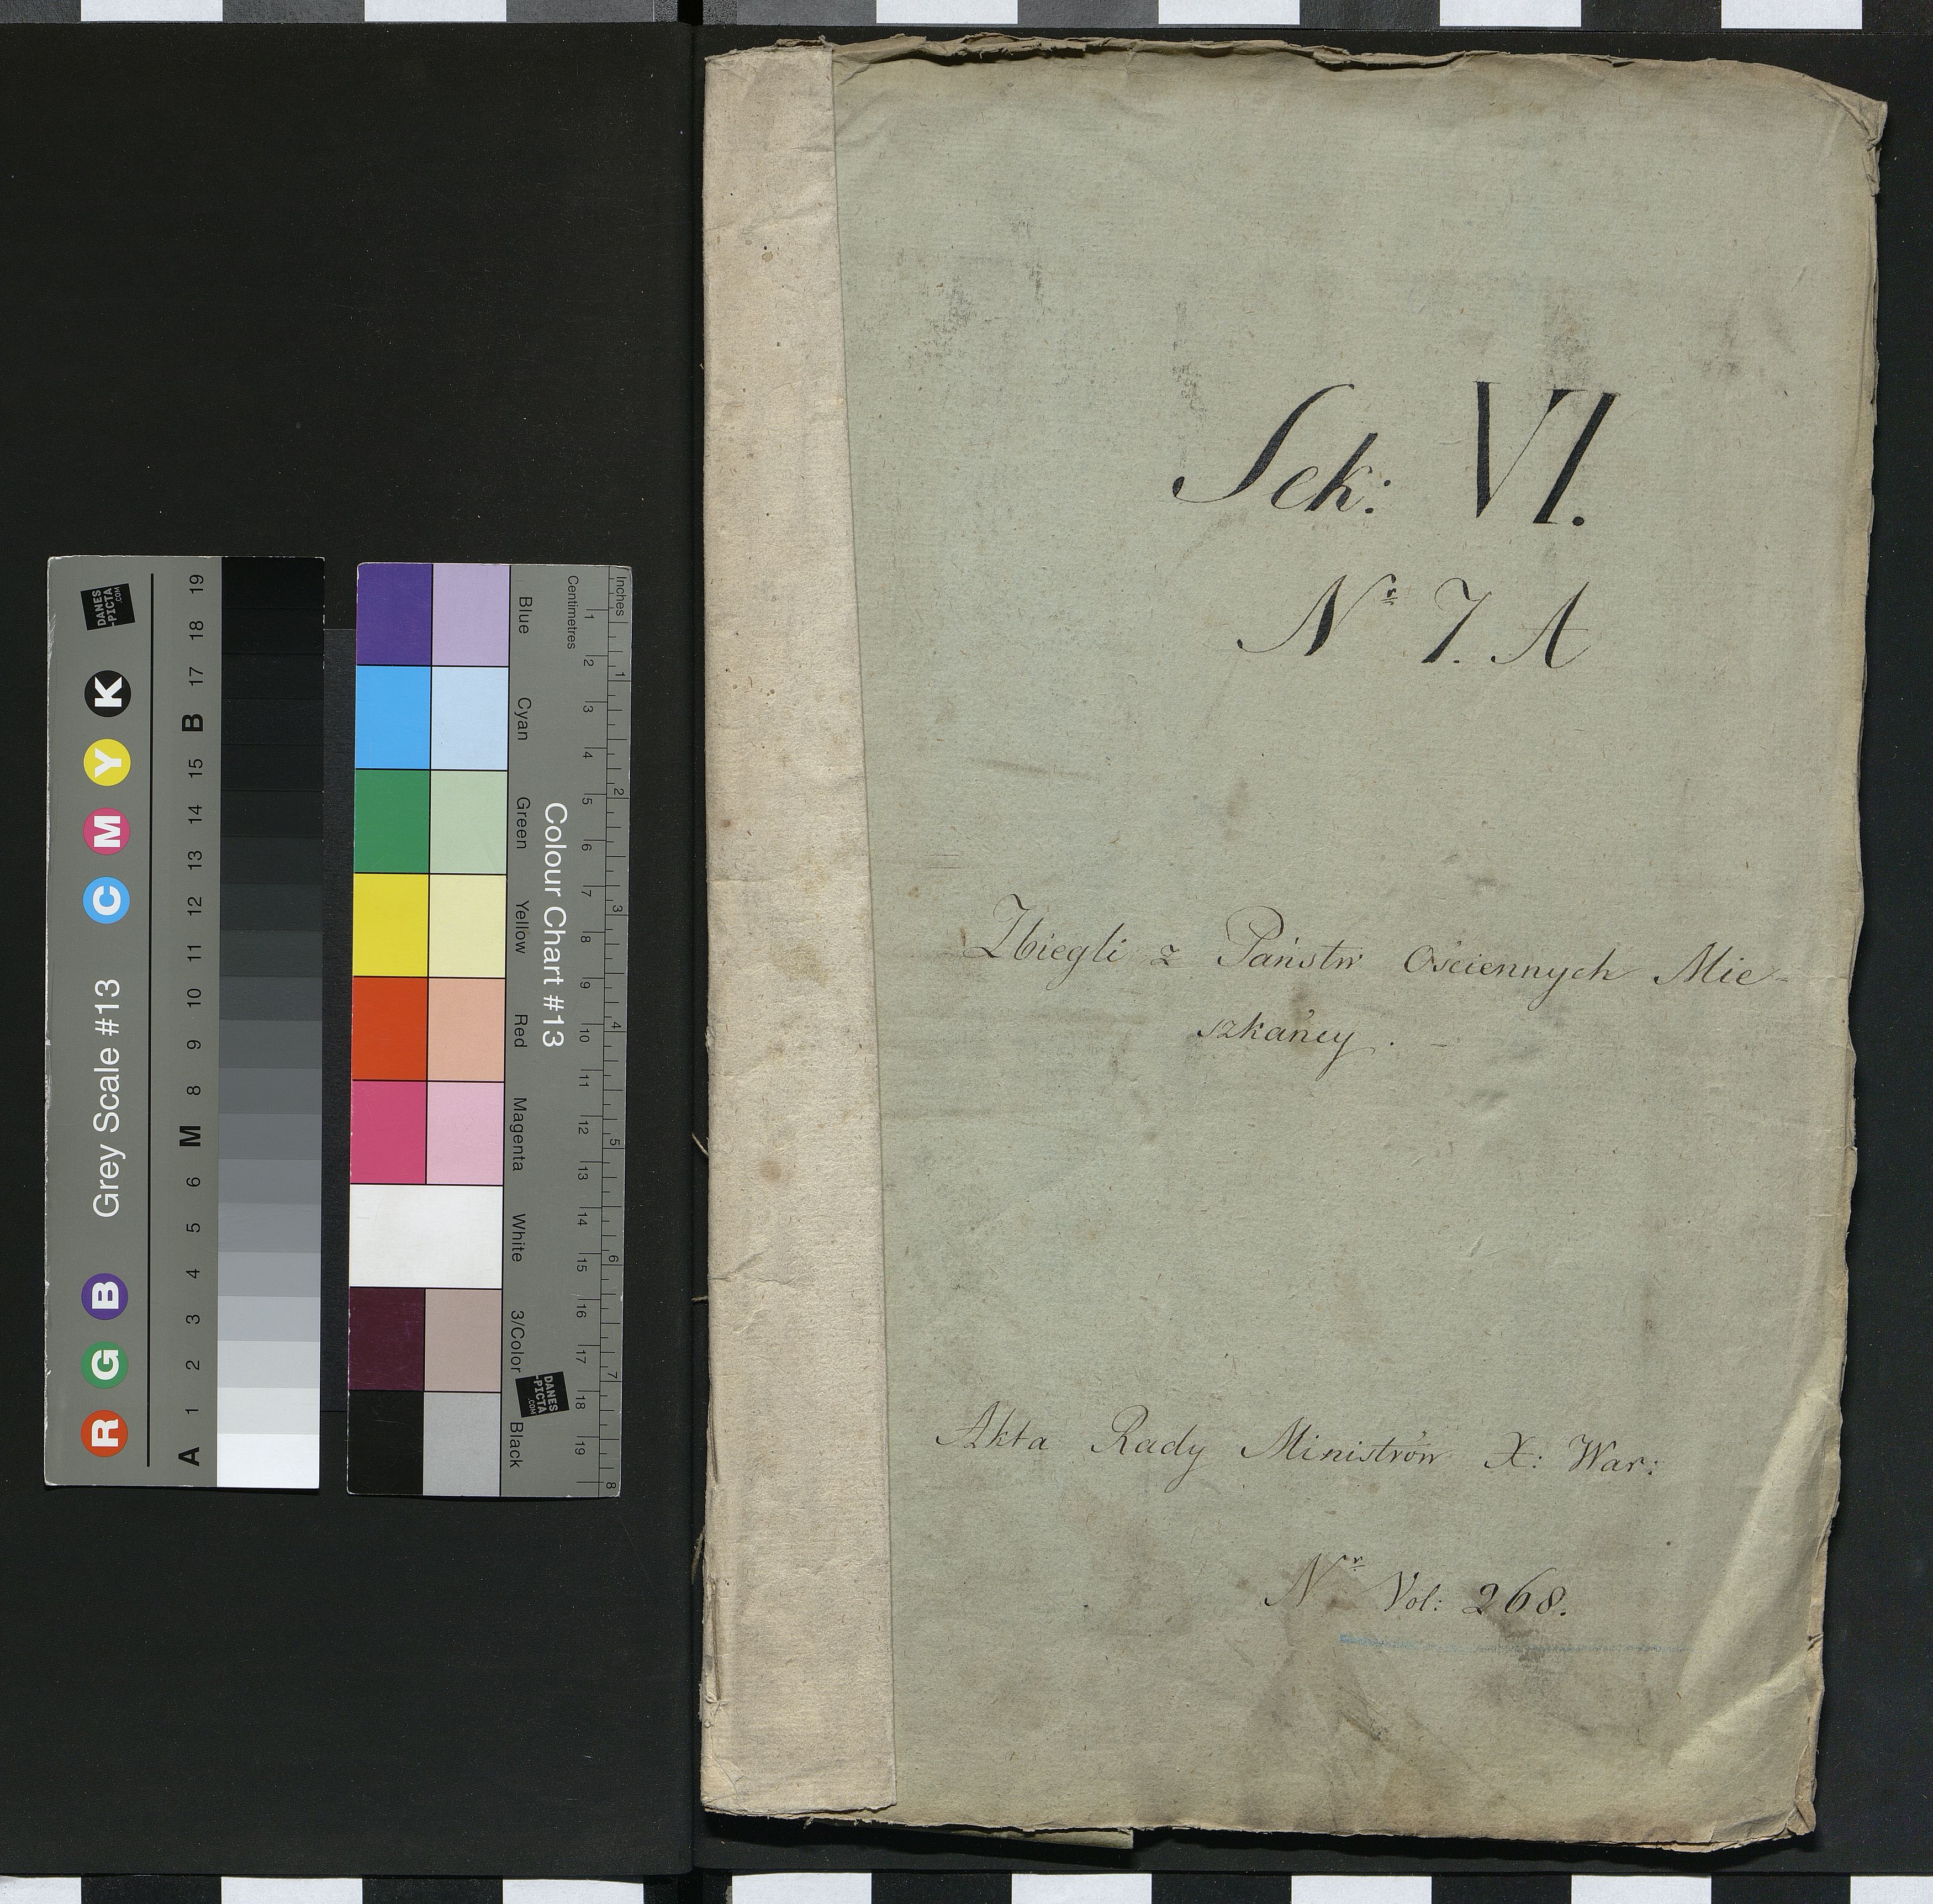 Sek: VI.
Nr 7. A
Zbiegli z Państw Ościennych Mie-
szkańcy. -
Akta Rady Ministrów X: War:
Nr Vol: 268.
DANES
-PICTA
.COM
R G B Grey Scale #13 C M Y K
A 1 2 3 4 5 6 M 8 9 10 11 12 13 14 15 B 17 18 19
Colour Chart #13
Blue Cyan Green Yellow Red Magenta White 3/Color Black
DANES
-PICTA
.COM
Centimetres 1 2 3 4 5 6 7 8 9 10 11 12 13 14 15 16 17 18 19
Inches 1 2 3 4 5 6 7 8